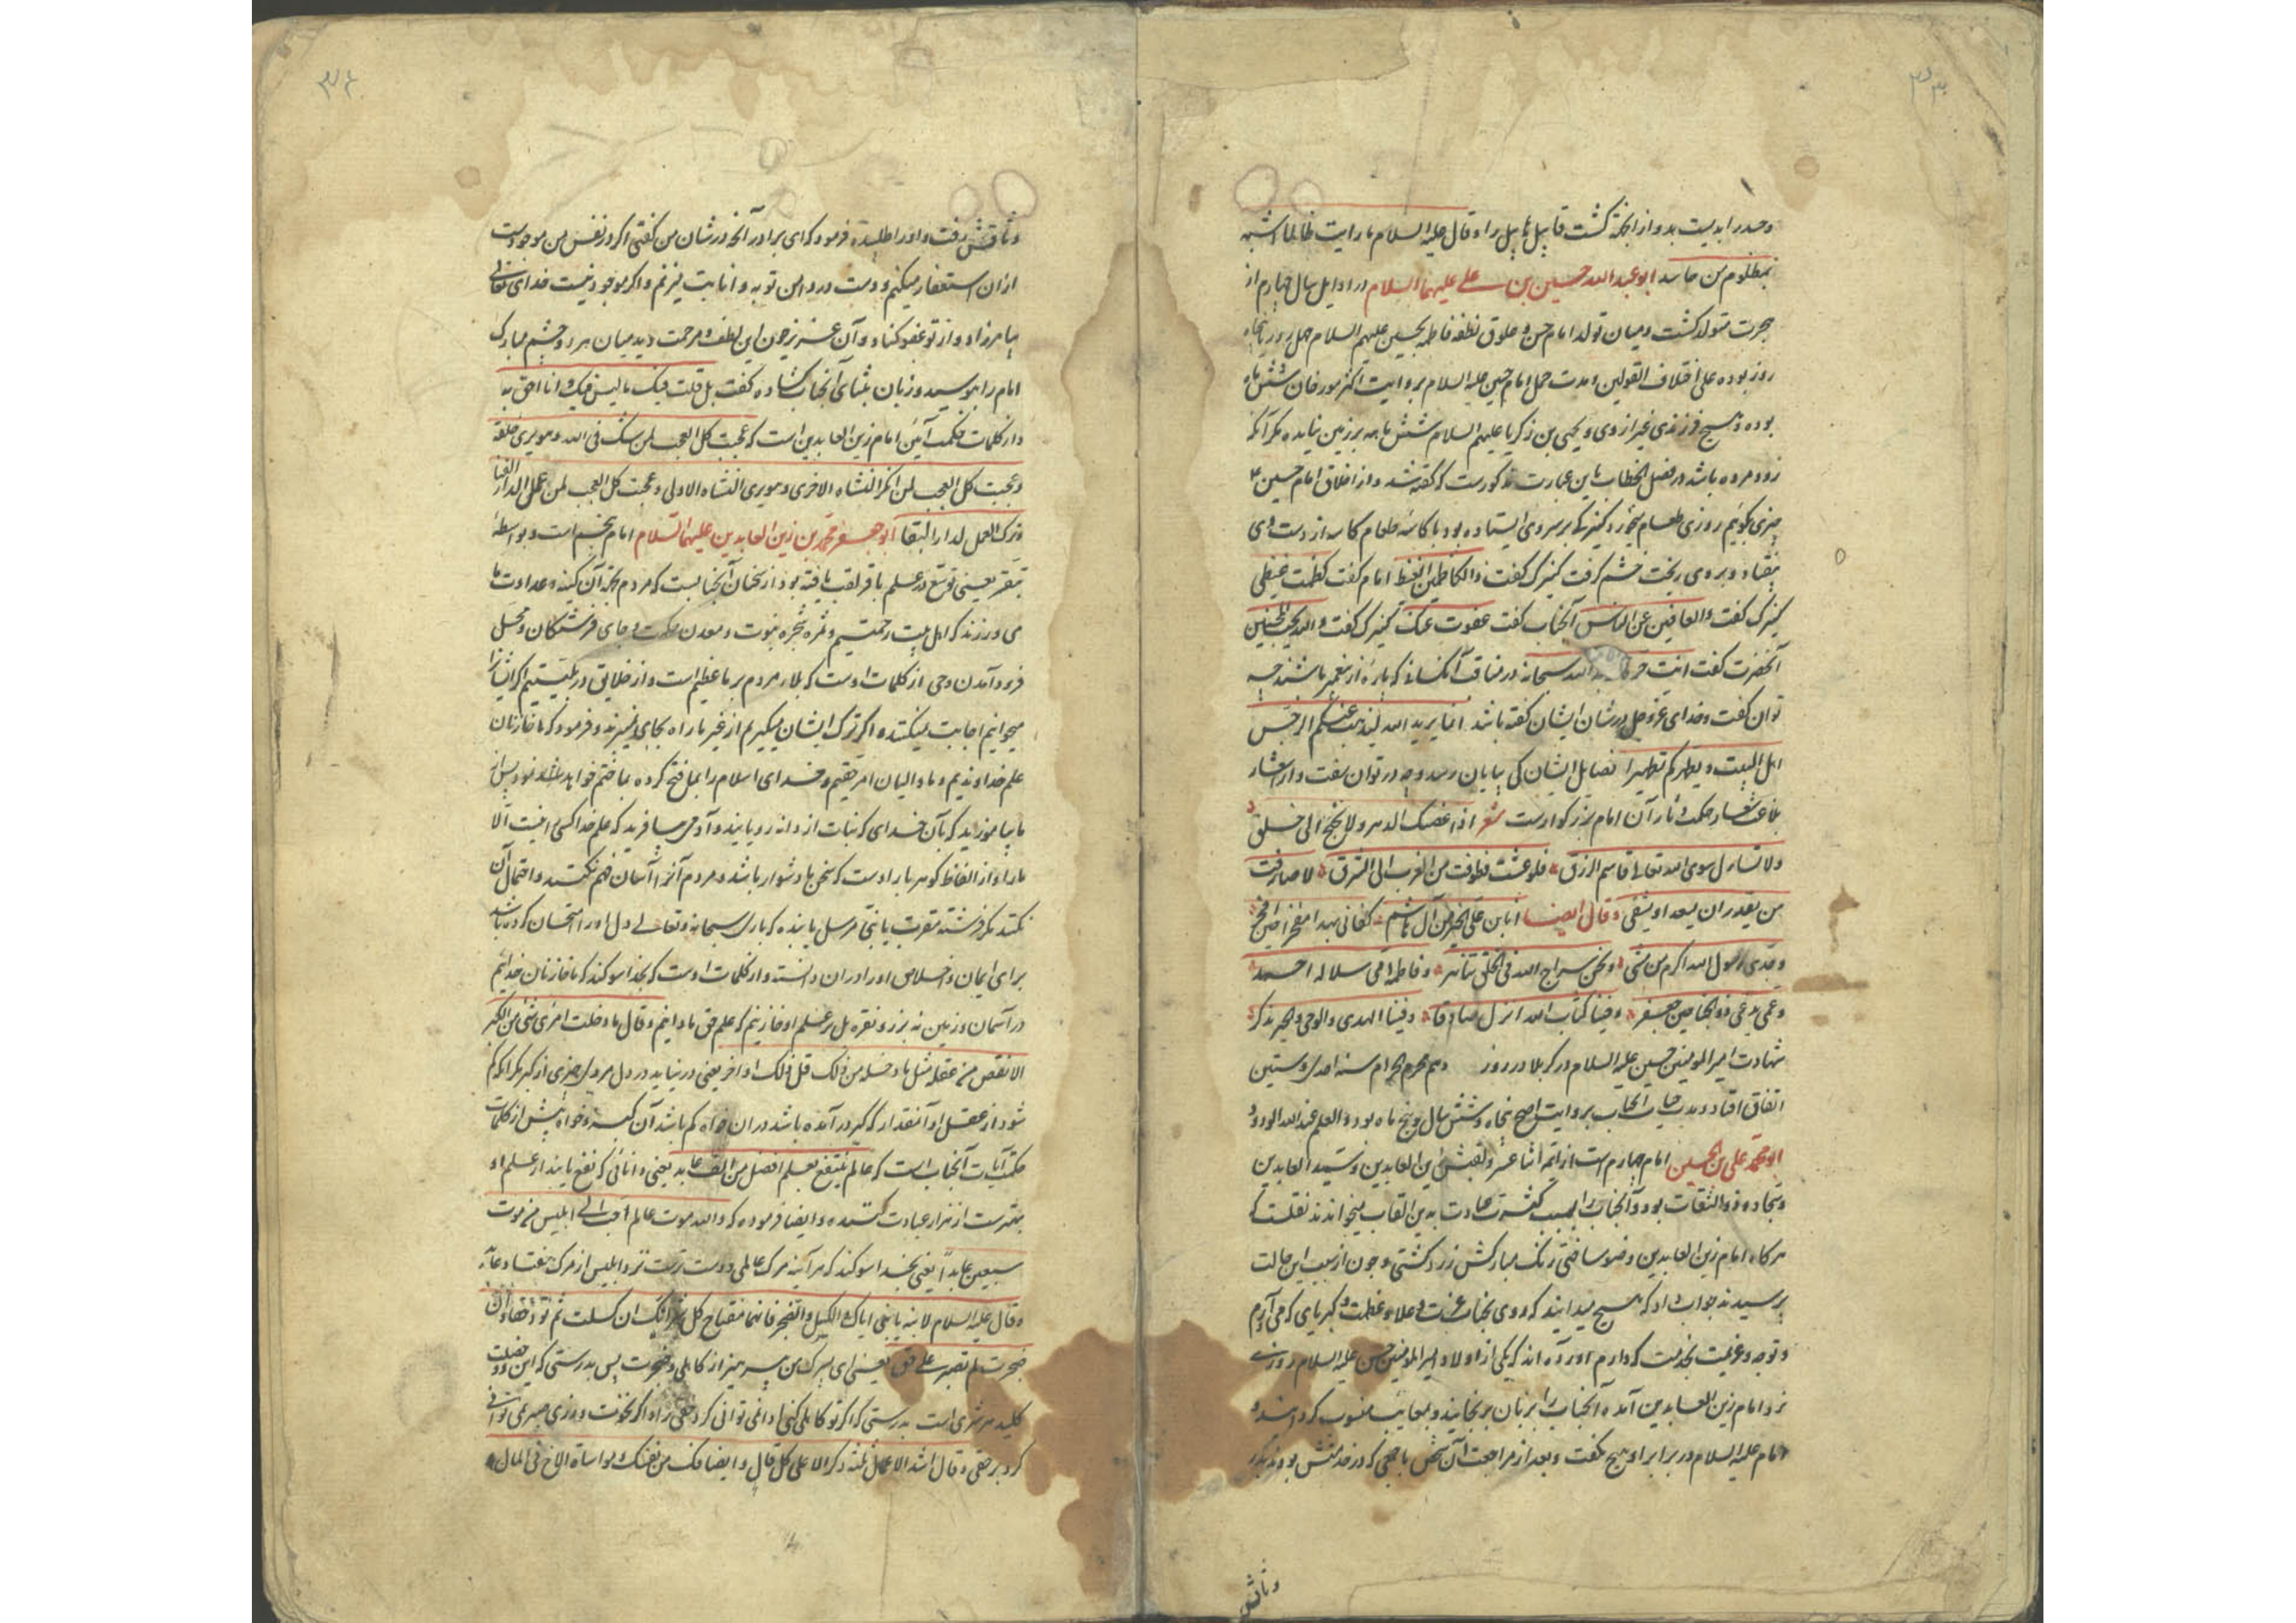 وحسد را بدیست بد و از انجمله کشت قابیل هابیل را و قال علیه السلام ما رایت ظالما اشبه
بمظلوم من حاسد ابو عبد الله حسین بن علی علیهما السلام در اوایل سال چهارم از
هجرت متولد کشت و میان تولد امام حسن و علوق نطفه فاطمه بحسین علیهم السلام چهل روز یا پنجاه
روز بوده علی اختلاف القولین و مدت حمل امام حسین علیه السلام بروایت اکثر مورخان شش ماه
بوده و هیچ فرزندی غیر از وی و یحیی بن زکریا علیهم السلام شش ماهه بر زمین نیامده مکر آنکه
زود مرده باشد در فصل الخطاب این عبارت مذکورست که کفته شد و از اخلاق امام حسین ع
چیزی بکوئیم روزی طعام میخورد کنیزکی بر سر وی ایستاده بود با کاسه طعام کاسه از دست وی
بیفتاد و بر وی ریخت خشم کرفت کنیزک کفت والکاظمین الغیظ امام کفت کظمت غیظی
کنیزک کفت والعافین عن الناس آنجناب کفت عفوت عنک کنیزک کفت والله یحب المحسنین
آنحضرت کفت انت حرة الله سبحانه در مناقب آنکسانی که پاره از پیغمبر باشند چه
توان کفت و خدای عز و جل در شان ایشان کفته باشد انما یرید الله لیذهب عنکم الرجس
اهل البیت و یطهرکم تطهیرا فضایل ایشان کی بپایان رسد و چه در توان سفت و از اشعار
بلاغت شعار حکمت دثار آن امام بزرکوارست شعر اذا عضک الدهر ولا تجنح الی خلق
ولا تسأل سوی الله تعالی قاسم الرزق فلو عشت وطوفت من الغرب الی الشرق لما صادفت
من یقدر ان یسعد او یشقی وقال ایضا انا ابن علی الخیر من آل هاشم کفانی بهذا مفخرا حین افخر
وجدی رسول الله اکرم من مشی ونحن سراج الله فی الخلق نزهر وفاطمة امی سلالة احمد
وعمی یدعی ذو الجناحین جعفر وفینا کتاب الله انزل صادقا وفینا الهدی والوحی والخیر یذکر
شهادت امیر المومنین حسین علیه السلام در کربلا در روز دهم محرم الحرام سنه احدی وستین
اتفاق افتاد و مدت حیات آنجناب بروایت اصح پنجاه و شش سال و پنج ماه بود والعلم عند الله الودود
ابو محمد علی بن الحسین امام چهارم است از ائمه اثنا عشر و لقبش زین العابدین و سید العابدین
و سجاد و ذو الثفنات بود و آنجناب را بسبب کثرت عبادت بدین القاب میخواندند نقلست که
هر کاه امام زین العابدین وضو ساختی رنک مبارکش زرد کشتی و چون از سبب این حالت
پرسیدند جواب داد که هیچ میدانید که روی بجناب عزت و علا و عظمت و کبریای که می آرم
و توجه و عزیمت بخدمت که دارم آورده اند که یکی از اولاد امیر المومنین حسن علیه السلام روزی
نزد امام زین العابدین آمده آنجناب را بزبان برنجانید و بمعایب منسوب کردانید و
امام علیه السلام در برابر او هیچ نکفت و بعد از مراجعت آن شخص با جمعی که در خدمتش بودند
وثاقش
وثاقش رفت و او را طلبیده فرمود که ای برادر آنچه در شان من کفتی اکر در نفس من موجودست
از آن استغفار میکنم و دست در دامن توبه و انابت میزنم و اکر موجود نیست خدای تعالی
بیامرزاد و از تو عفو کناد و آن عزیز چون این لطف و مرحمت دید میان هر دو چشم مبارک
امام را بوسید و زبان بثنای آنجناب کشاده کفت بل قلت فیک ما لیس فیک و انا احق به
و از کلمات حکمت آئین امام زین العابدین است که عجبت کل العجب لمن شک فی الله وهو یری خلقه
وعجبت کل العجب لمن انکر النشاة الاخری وهو یری النشاة الاولی وعجبت کل العجب لمن عمل لدار الفنا
وترک العمل لدار البقا ابو جعفر محمد بن زین العابدین علیهما السلام امام پنجم است و بواسطه
تبقر یعنی توسع در علم باقر لقب یافته بود از سخنان آنجنابست که مردم بچه آن کینه و عداوت ما
می ورزند که اهل بیت رحمتیم و ثمره شجره نبوت و معدن حکمت و جای فرشتکان و محل
فرود آمدن وحی از کلمات اوست که بلاء مردم بر ما عظیم است و از خلایق در بلیتیم اکر ایشانرا
میخوانیم اجابت نمیکنند و اکر ترک ایشان میکیریم از غیر ما راه بجایی نمیبرند و فرمود که ما خازنان
علم خداوندیم و ما والیان امر حقیم و خدای اسلام را بما فتح کرده بما ختم خواهد نمود پس از
ما بیاموزید که بآن خدای که نبات از دانه رویانید و آدمی بیافرید که علم خدا کسی نیست الا
ما را و از الفاظ کوهربار اوست که سخن ما دشوار باشد و مردم آنرا آسان فهم نکنند و احتمال آن
نکند مکر فرشته مقرب یا نبی مرسل یا بنده که باری سبحانه و تعالی دل او را امتحان کرده باشد
برای ایمان و اخلاص او را در آن دانسته و از کلمات اوست که بخدا سوکند که ما خازنان خدائیم
در آسمان و زمین نه بر زر و نقره بل بر علم او خازنیم که علم حق ما دانیم وقال ما دخلت امرئ شئ من الکبر
الا نقص من عقله مثل ما دخله من ذلک قل ذلک او اکثر یعنی در نیاید در دل مردی چیزی از کبر مکر آنکه کم
شود از عقل او آنمقدار که کبر در آمده باشد در آن خواه کم باشد آن کبر و خواه بیش از کلمات
حکمت آیات آنجناب است که عالم ینتفع بعلمه افضل من الف عابد یعنی دانائی که نفع یابند از علم او
بهترست از هزار عبادت کننده و ایضا فرموده که والله موت عالم احب الی ابلیس من موت
سبعین عابدا یعنی بخدا سوکند که هر آینه مرک عالمی دوست ترست نزد ابلیس از مرک هفتاد عابد
وقال علیه السلام لابنه یا بنی ایاک والکسل والضجر فانهما مفتاح کل شر انک ان کسلت لم تؤد حقا وان
ضجرت لم تصبر علی حق یعنی ای پسرک من بپرهیز از کاهلی و ضجرت پس بدرستی که این دو خصلت
کلید هر شری است بدرستی که اکر تو کاهلی کنی ادا نمی توانی کرد حقی را و اکر ضجرت ورزی صبر نمی توانی
کرد بر حقی وقال اشد الاعمال ثلثة ذکر الله علی کل حال وانصافک من نفسک ومواساة الاخ فی المال